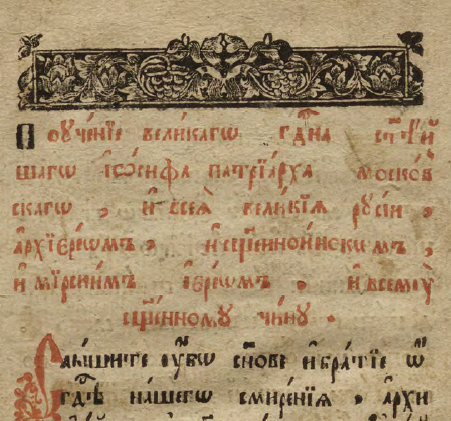 Поꙋче́нїе вели́кагѡ гд҇на ст҃ѣ́й
шагѡ і҆ѡ́сифа патрїа́рха моско́в
скагѡ , и҆ всеѧ̀ вели́кїѧ рꙋсі́и ,
а҆рхїерє́ѡмъ , и҆ сщ҃е́нноино́кимъ ,
и҆ мїрски́мъ і҆ере́ѡмъ , и҆ всемꙋ̀
сщ҃е́нномꙋ чи́нꙋ .
Слы́шите ᲂу҆́бѡ сн҃ове и҆ бра́тїе ѿ
гд҇ѣ на́шегѡ смире́нїѧ , а҆рхи